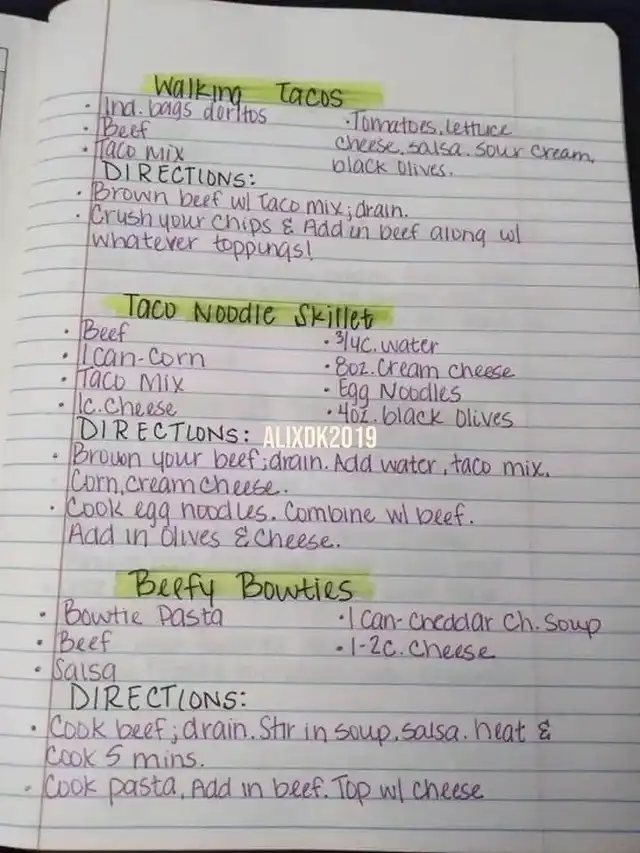 Walking Tacos
• Ind. bags doritos
• Beef
• Taco Mix
• Tomatoes, lettuce
cheese, salsa, sour cream,
black olives.
DIRECTIONS:
• Brown beef w/ Taco mix; drain.
• Crush your chips & Add in beef along w/
whatever toppings!
Taco Noodle Skillet
• Beef
• 1 can-corn
• Taco Mix
• 1c. cheese
• 3/4c. water
• 8oz. cream cheese
• Egg Noodles
• 4oz. black olives
DIRECTIONS:
ALIXDK2019
• Brown your beef; drain. Add water, taco mix,
corn, cream cheese.
• Cook egg noodles. Combine w/ beef.
Add in olives & cheese.
Beefy Bowties
• Bowtie Pasta
• Beef
• Salsa
• 1 can- cheddar ch. soup
• 1-2c. cheese
DIRECTIONS:
• Cook beef; drain. Stir in soup, salsa. heat &
cook 5 mins.
• Cook pasta, Add in beef. Top w/ cheese